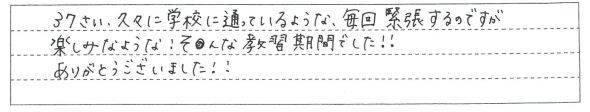 37さい、久々に学校に通っているような、毎回緊張するのですが
楽しみなような!そんな教習期間でした!!
ありがとうございました!!